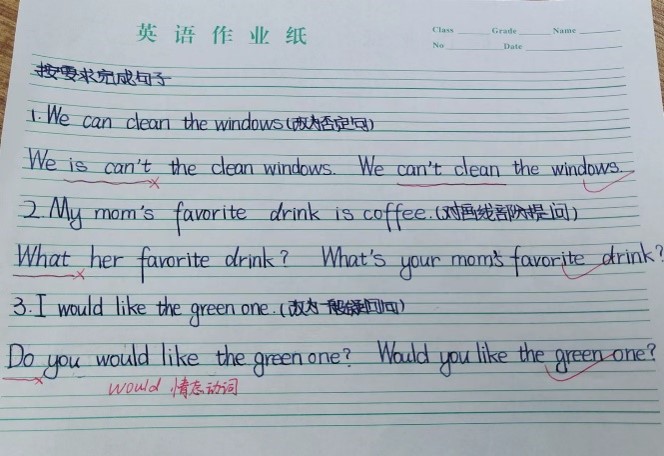 英语作业纸
Class Grade Name
No Date
按要求完成句子
1. We can clean the windows (改为否定句)
We is can't the clean windows. We can't clean the windows.
2. My mom's favorite drink is coffee. (对画线部分提问)
What her favorite drink? What's your mom's favorite drink?
3. I would like the green one. (改为一般疑问句)
Do you would like the green one? Would you like the green one?
would 情态动词